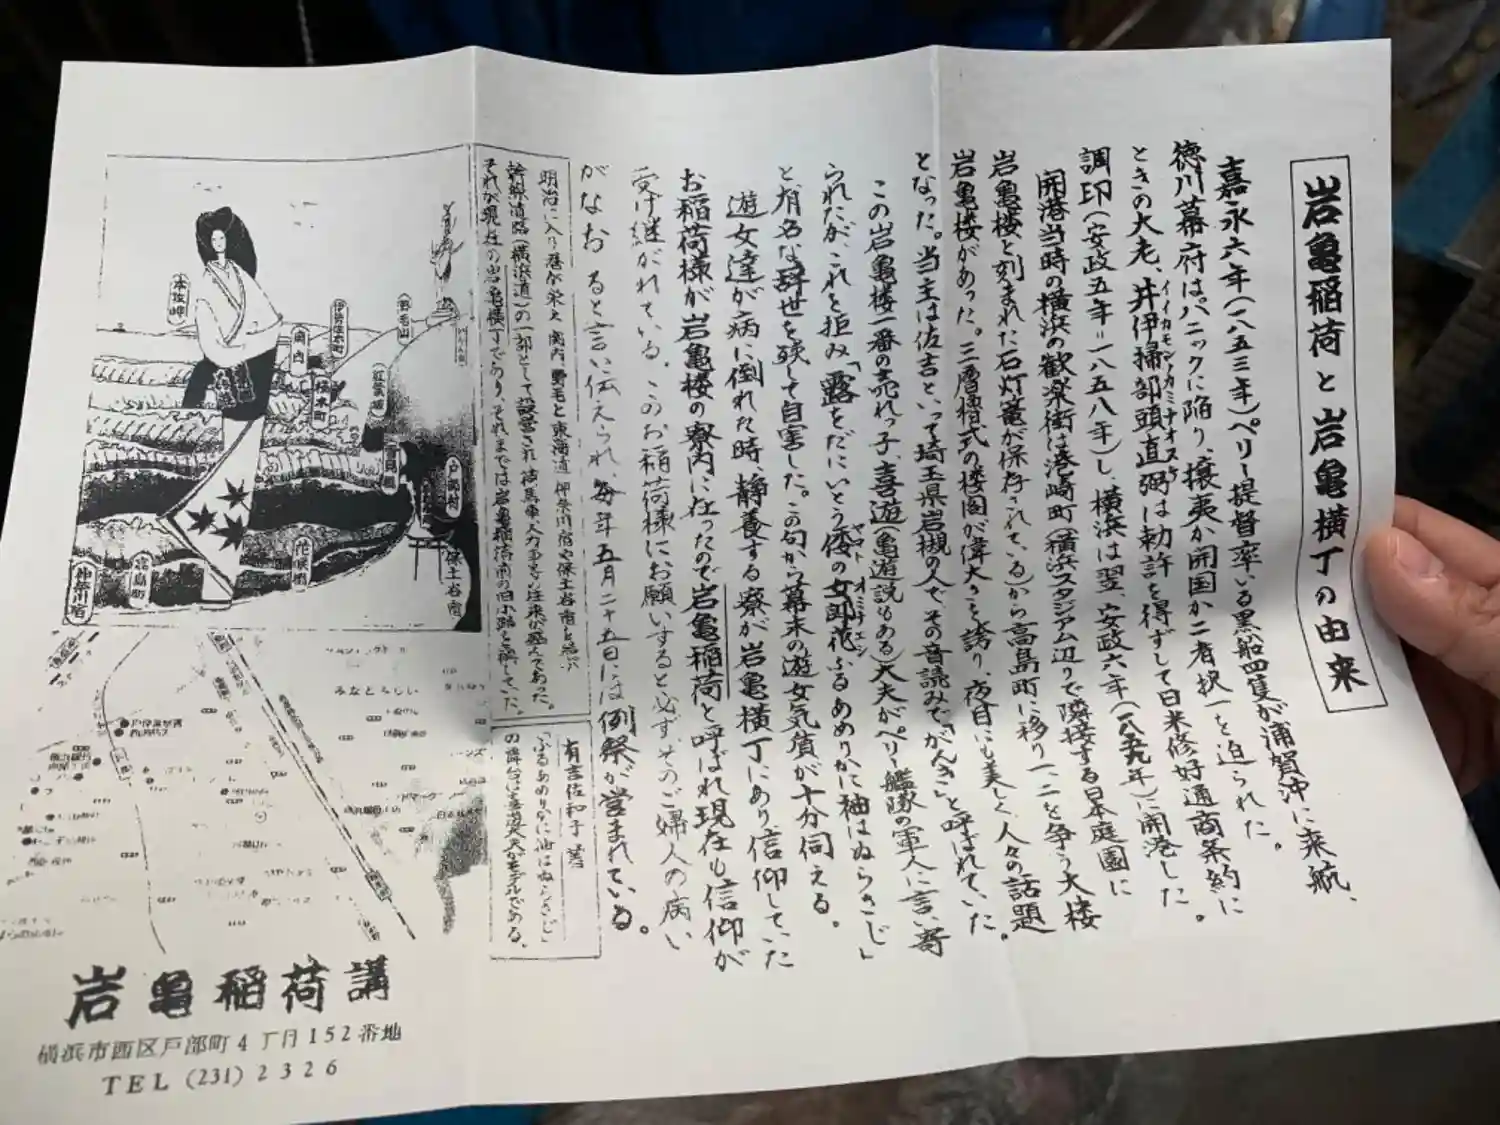 岩亀稲荷と岩亀横丁の由来
嘉永六年(一八五三年)ペリー提督率いる黒船四隻が浦賀沖に来航、
徳川幕府はパニックに陥り、攘夷か開国か二者択一を迫られた。
ときの大老、井伊掃部頭直弼は勅許を得ずして日米修好通商条約に
調印(安政五年=一八五八年)し、横浜は翌、安政六年(一八五九年)に開港した。
開港当時の横浜の歓楽街は港崎町(横浜スタジアム辺り)で隣接する日本庭園に
岩亀楼と刻まれた石灯篭が保存されている)から高島町に移り一、二を争う大楼
岩亀楼があった。三層楼式の楼閣が偉大さを誇り、夜目にも美しく人々の話題
となった。当主は佐吉といって埼玉県岩槻の人で、その音読みで「がんき」と呼ばれていた。
この岩亀楼一番の売れっ子、喜遊(亀遊説もある)大夫がペリー艦隊の軍人に言い寄
られたが、これを拒み「露をだにいとう倭の女郎花ふるあめりかに袖はぬらさじ」
と有名な辞世を残して自害した。この句から幕末の遊女気質が十分伺える。
遊女達が病に倒れた時、静養する寮が岩亀横丁にあり信仰していた
お稲荷様が岩亀楼の寮内に在ったので岩亀稲荷と呼ばれ現在も信仰が
受け継がれている。このお稲荷様にお願いすると必ずそのご婦人の病い
がなおると言い伝えられ、毎年五月二十五日には例祭が営まれている。
明治に入り港が栄え関内、野毛と東海道神奈川宿や保土谷宿を結ぶ
幹線道路(横浜道)の一部として設営され荷馬車人力車等の往来が盛んであった。
それが現在の岩亀横丁であり、それまでは岩亀稲荷前の旧小路と称していた。
有吉佐和子著
「ふるあめりかに袖はぬらさじ」
の舞台は喜遊大夫がモデルである。
本牧岬
関内
伊勢佐木町
野毛山
桜木町
紅葉坂
戸部村
高島町
神奈川宿
保土谷宿
みなとみらい
岩亀稲荷講
横浜市西区戸部町4丁目152番地
TEL (231) 2326